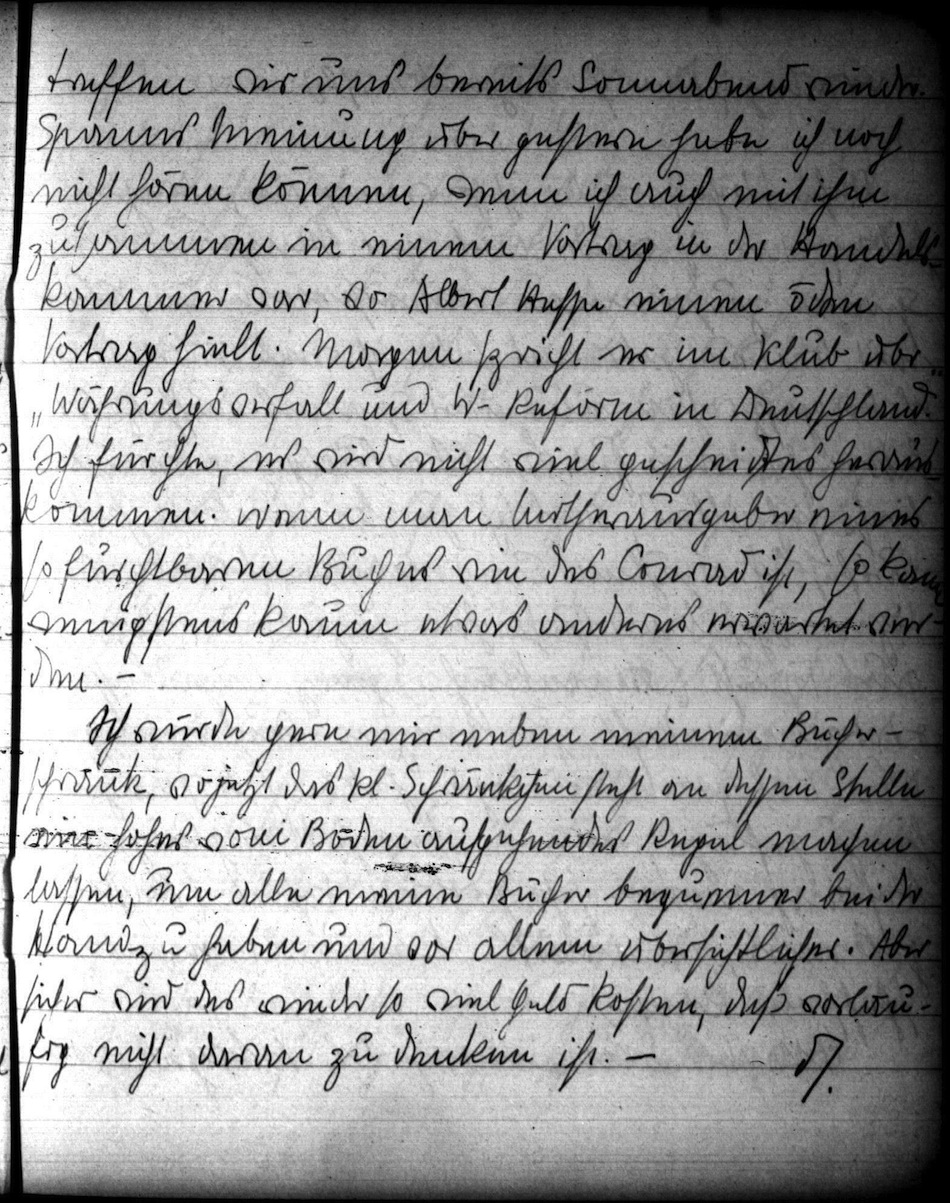 treffen wir uns bereits Sonnabend wieder.
Spanns Meinung über gestern habe ich noch
nicht hören können, wenn ich auch mit ihm
zusammen in einem Vortrag in der Handels-
kammer war, wo Albert Hesse einen öden
Vortrag hielt. Morgen spricht er im Klub über
„Währungsverfall und W-Reform in Deutschland.“
Ich fürchte, es wird nicht viel gescheidtes heraus-
kommen. Wenn man Mitherausgeber eines
so furchtbaren Buches wie des Conrad ist, so kann
wenigstens kaum etwas anderes erwartet wer-
den. –
Ich würde gern mir neben meinem Bücher-
schrank, wo jetzt das kl. Schränkchen steht an dessen Stelle
ein hohes vom Boden aufgehendes Regal machen
lassen, um alle meine Bücher bequemer bei der
Hand zu haben und vor allem übersichtlicher. Aber
sicher wird das wieder so viel Geld kosten, daß vorläu-
fig nicht daran zu denken ist. –